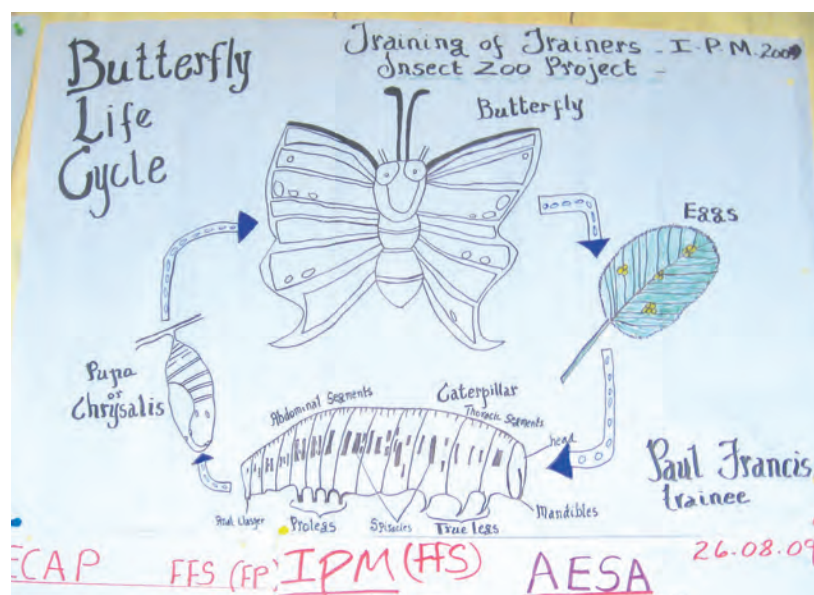 Butterfly
Life
Cycle
Training of Trainers - I.P.M. 2009
Insect Zoo Project -
Butterfly
Eggs
Pupa
or
Chrysalis
Abdominal Segments
Caterpillar
Thoracic Segments
head
Mandibles
True legs
Spiracles
Prolegs
Paul Francis
trainee
ECAP
FFS (FP)
IPM (FFS)
AESA
26.08.09